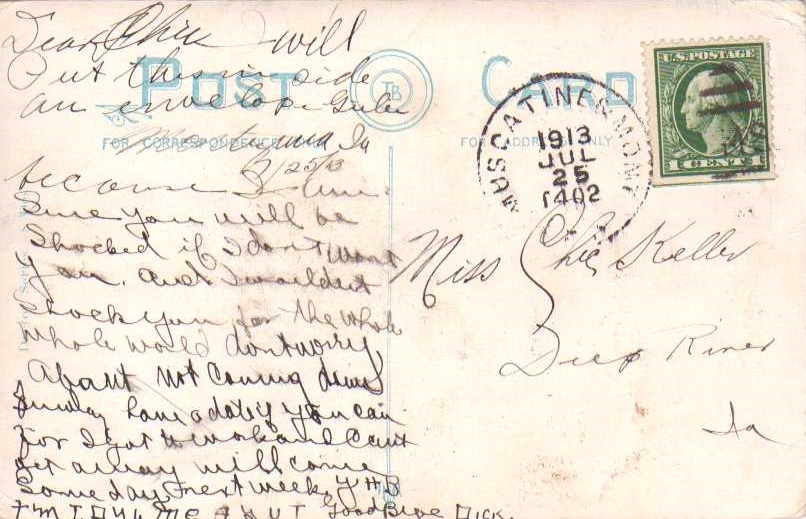 Dear Chic will
Put this in side
an envelope
POST CARD
TB
FOR CORRESPONDENCE ONLY
FOR ADDRESS ONLY
U.S. POSTAGE
1 CENT 1
MUSCATINE & MONT
1913
JUL
25
Ia
7/25/13
because I am
Sure you will be
Shocked if I dont want
you. and I wouldent
shock you for the whole
whole world dont worry
About not coming down
Sunday have a date if you can
for I got to work and cant
get away will come
Some day next week
Good Bye Dick.
Miss Chic Keller
Deep River
Ia